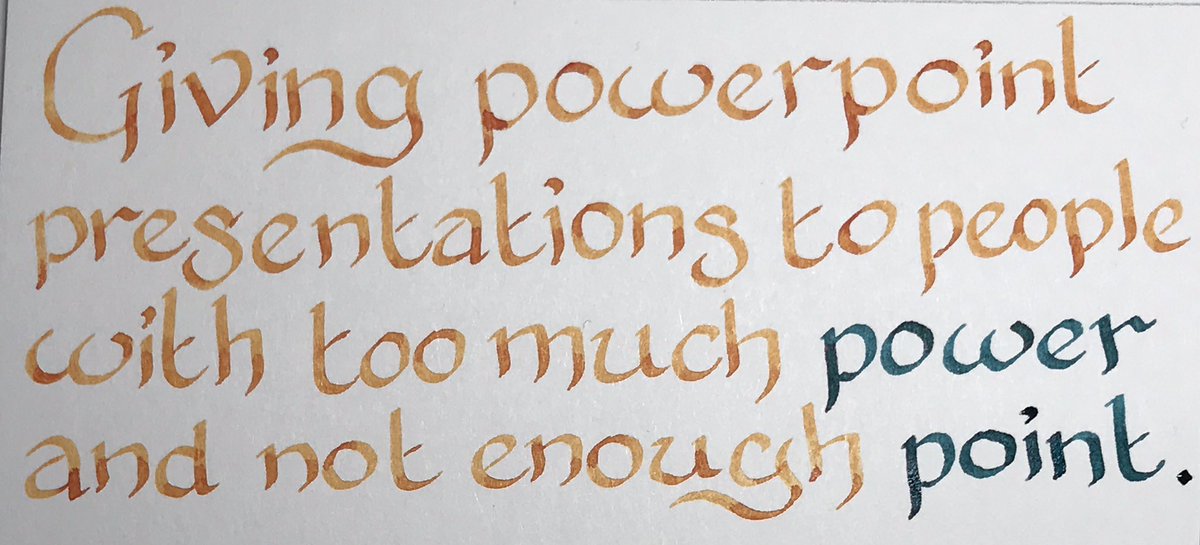 Giving powerpoint
presentations to people
with too much power
and not enough point.